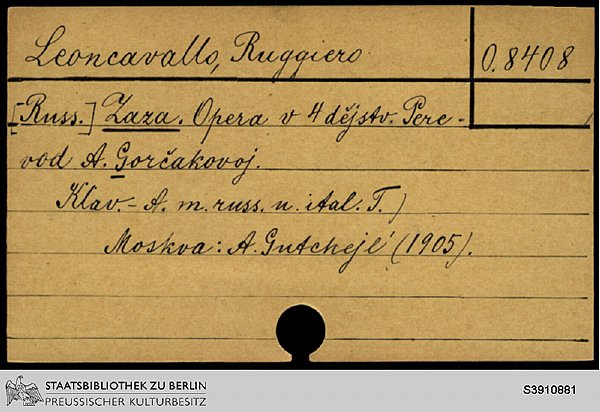 Leoncavallo, Ruggiero
O. 8408
[Russ.] Zaza. Opera v 4 dějstv. Pere-
vod A. Gorčakovoj.
Klav.-A. m. russ. u. ital. T.)
Moskva: A. Gutchejl' (1905).
STAATSBIBLIOTHEK ZU BERLIN
PREUSSISCHER KULTURBESITZ
S3910881